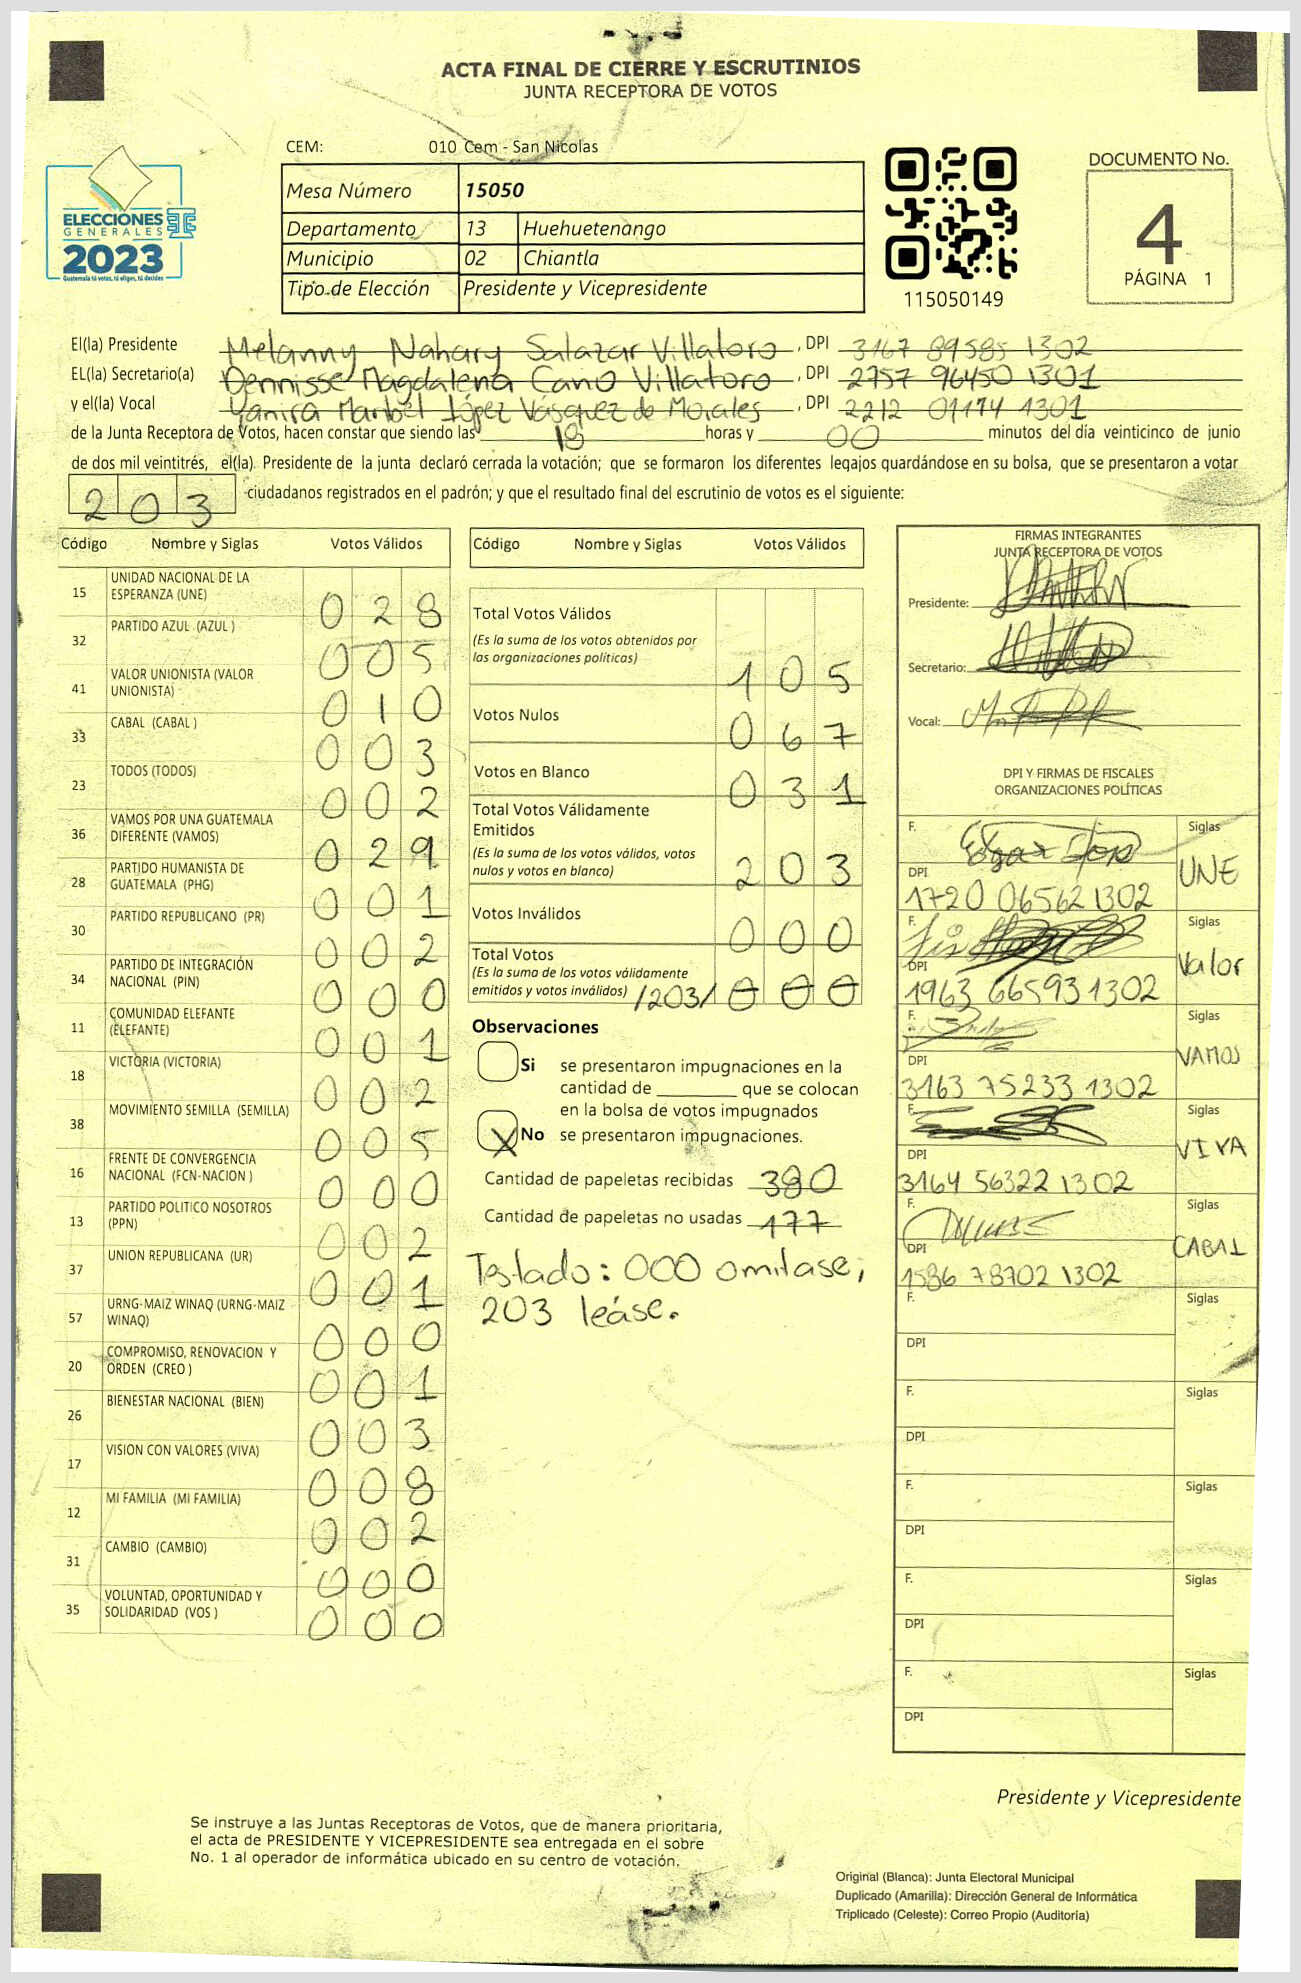 ACTA FINAL DE CIERRE Y ESCRUTINIOS
JUNTA RECEPTORA DE VOTOS
CEM: 010 Cem - San Nicolas
ELECCIONES
GENERALES
2023
Guatemala tú votas, tú eliges, tú decides
Mesa Número 15050
Departamento 13 Huehuetenango
Municipio 02 Chiantla
Tipo de Elección Presidente y Vicepresidente
115050149
DOCUMENTO No.
4
PÁGINA 1
El(la) Presidente Melanny Nahary Salazar Villatoro , DPI 3167 89585 1302
EL(la) Secretario(a) Dennisse Magdalena Cano Villatoro , DPI 2757 96450 1301
y el(la) Vocal Yanira Maribel López Vásquez de Morales , DPI 2212 01174 1301
de la Junta Receptora de Votos, hacen constar que siendo las 18 horas y 00 minutos del día veinticinco de junio
de dos mil veintitrés, el(la). Presidente de la junta declaró cerrada la votación; que se formaron los diferentes legajos guardándose en su bolsa, que se presentaron a votar
203 ciudadanos registrados en el padrón; y que el resultado final del escrutinio de votos es el siguiente:
Código Nombre y Siglas Votos Válidos
15 UNIDAD NACIONAL DE LA ESPERANZA (UNE) 028
32 PARTIDO AZUL (AZUL ) 005
41 VALOR UNIONISTA (VALOR UNIONISTA) 010
33 CABAL (CABAL ) 003
23 TODOS (TODOS) 002
36 VAMOS POR UNA GUATEMALA DIFERENTE (VAMOS) 029
28 PARTIDO HUMANISTA DE GUATEMALA (PHG) 001
30 PARTIDO REPUBLICANO (PR) 002
34 PARTIDO DE INTEGRACIÓN NACIONAL (PIN) 000
11 COMUNIDAD ELEFANTE (ELEFANTE) 001
18 VICTORIA (VICTORIA) 002
38 MOVIMIENTO SEMILLA (SEMILLA) 005
16 FRENTE DE CONVERGENCIA NACIONAL (FCN-NACION ) 000
13 PARTIDO POLITICO NOSOTROS (PPN) 002
37 UNION REPUBLICANA (UR) 001
57 URNG-MAIZ WINAQ (URNG-MAIZ WINAQ) 000
20 COMPROMISO, RENOVACION Y ORDEN (CREO ) 001
26 BIENESTAR NACIONAL (BIEN) 003
17 VISION CON VALORES (VIVA) 008
12 MI FAMILIA (MI FAMILIA) 002
31 CAMBIO (CAMBIO) 000
35 VOLUNTAD, OPORTUNIDAD Y SOLIDARIDAD (VOS ) 000
Código Nombre y Siglas Votos Válidos
Total Votos Válidos
(Es la suma de los votos obtenidos por
las organizaciones políticas) 105
Votos Nulos 067
Votos en Blanco 031
Total Votos Válidamente
Emitidos
(Es la suma de los votos válidos, votos
nulos y votos en blanco) 203
Votos Inválidos 000
Total Votos
(Es la suma de los votos válidamente
emitidos y votos inválidos) /203/ 000
Observaciones
Si se presentaron impugnaciones en la
cantidad de ________ que se colocan
en la bolsa de votos impugnados
X No se presentaron impugnaciones.
Cantidad de papeletas recibidas 380
Cantidad de papeletas no usadas 177
Testado: 000 omitase;
203 leáse.
FIRMAS INTEGRANTES
JUNTA RECEPTORA DE VOTOS
Presidente:
Secretario:
Vocal:
DPI Y FIRMAS DE FISCALES
ORGANIZACIONES POLÍTICAS
F. Siglas
UNE
DPI
1720 06562 1302
F. Siglas
Valor
DPI
1963 66593 1302
F. Siglas
VAMOS
DPI
3163 75233 1302
F. Siglas
VIVA
DPI
3164 56322 1302
F. Siglas
CABAL
DPI
1586 78702 1302
F. Siglas
DPI
F. Siglas
DPI
F. Siglas
DPI
F. Siglas
DPI
F. Siglas
DPI
Presidente y Vicepresidente
Se instruye a las Juntas Receptoras de Votos, que de manera prioritaria,
el acta de PRESIDENTE Y VICEPRESIDENTE sea entregada en el sobre
No. 1 al operador de informática ubicado en su centro de votación.
Original (Blanca): Junta Electoral Municipal
Duplicado (Amarilla): Dirección General de Informática
Triplicado (Celeste): Correo Propio (Auditoría)